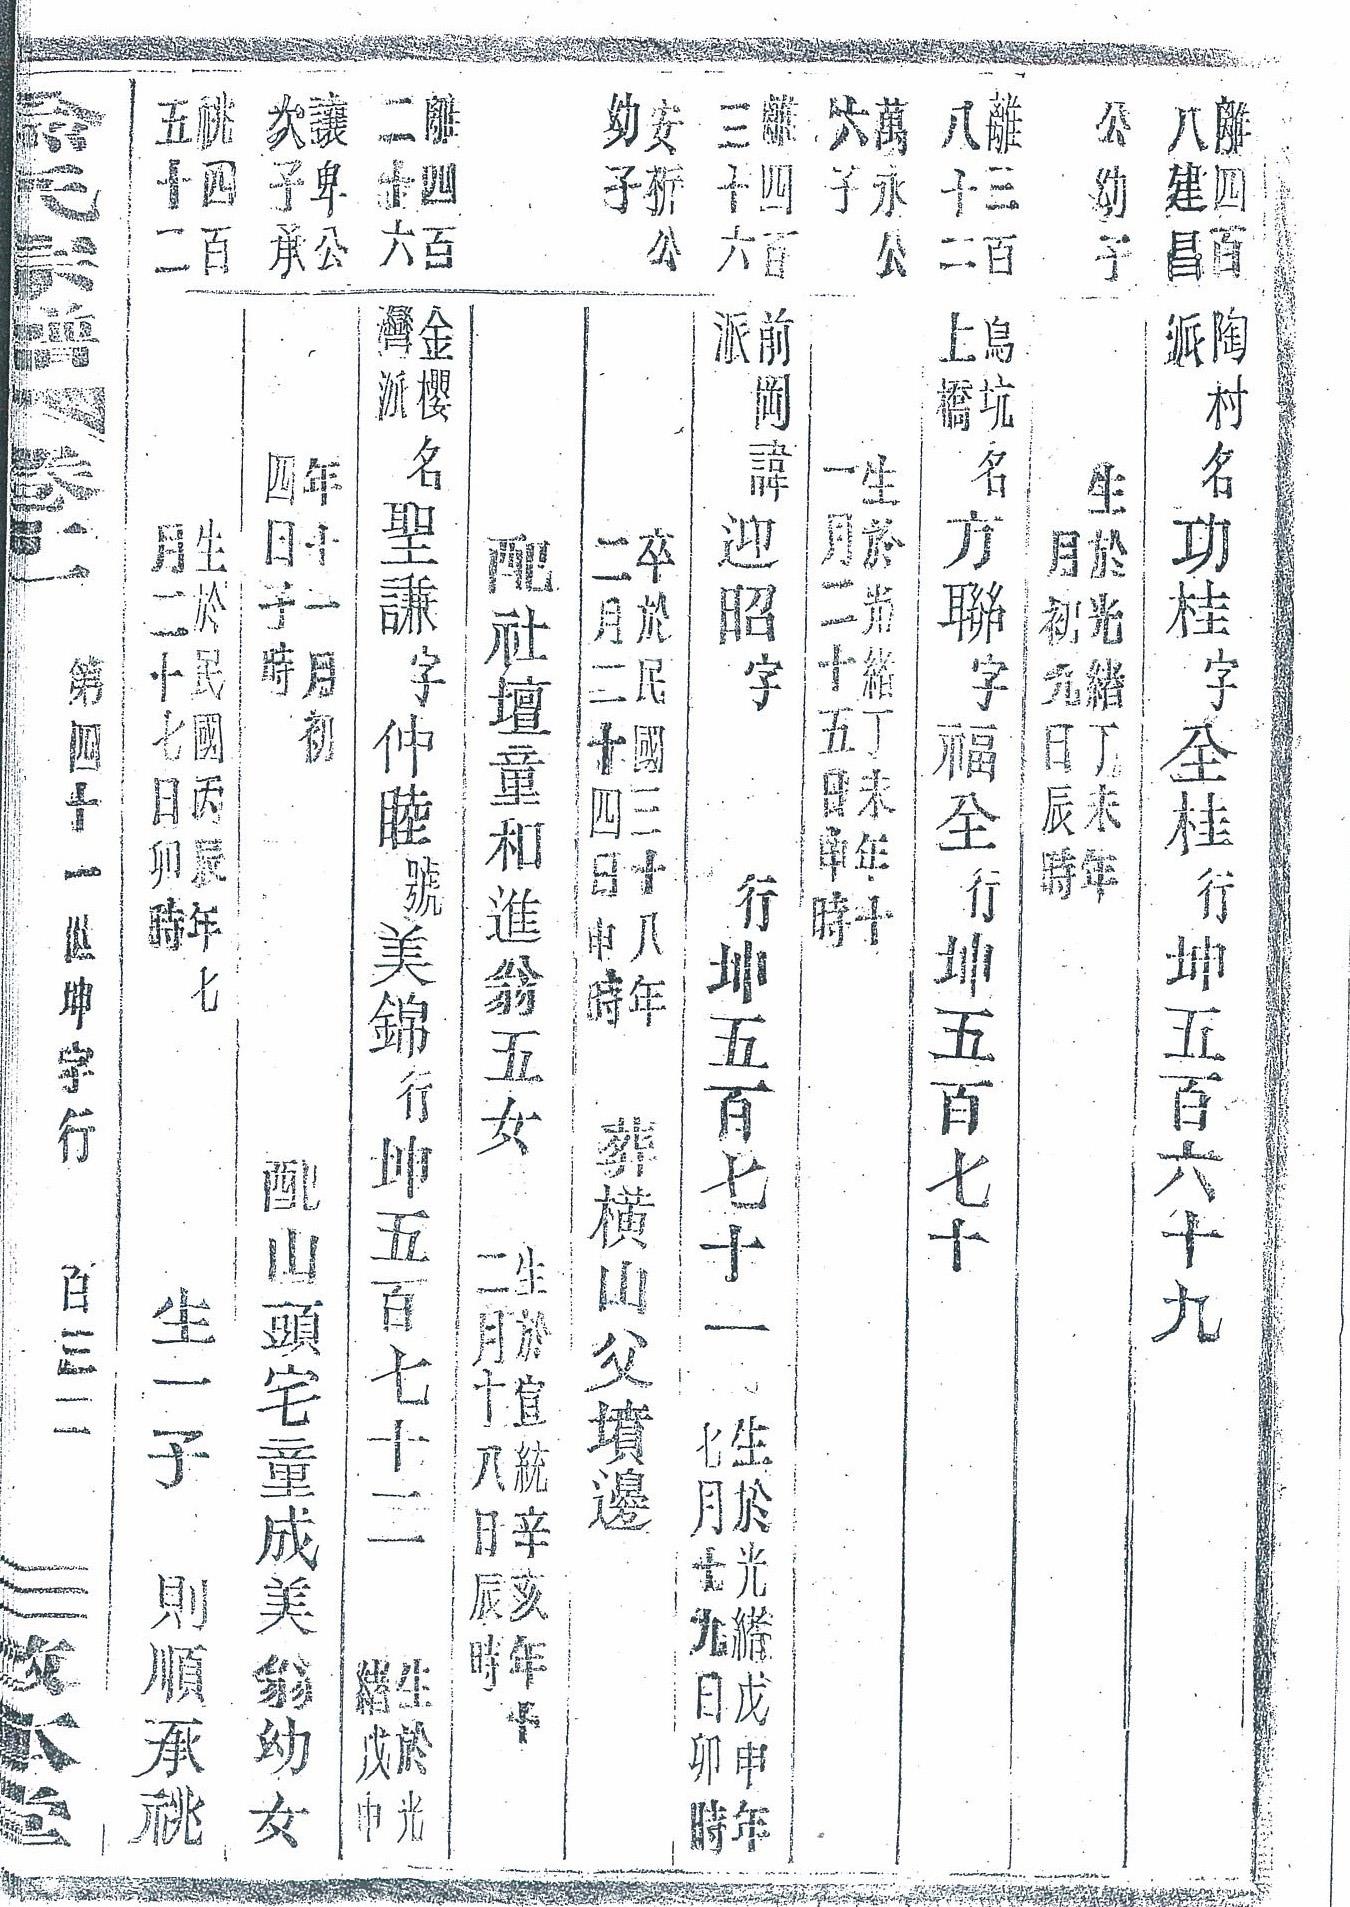 離四百
八建昌
陶村
派
名功桂字全桂行坤五百六十九
公幼子
生於光緒丁未年
月初九日辰時
離三百
八十二
鳥坑
上橋
名方聯字福全行坤五百七十
萬永公
六子
生於光緒丁未年十
一月二十五日申時
離四百
三十六
前岡
派
諱迎昭字 行坤五百七十一
生於光緒戊申年
七月十九日卯時
安折公
幼子
卒於民國三十八年
二月二十四日申時
葬橫山父墳邊
配社壇童和進翁五女
生於宣統辛亥年十
二月十八日辰時
離四百
二十六
金櫻
灣派
名聖謙字仲睦號美錦行坤五百七十二
生於光
緒戊申
讓卑公
次子承
年十一月初
四日子時
配山頭宅童成美翁幼女
祧四百
五十二
生於民國丙辰年七
月二十七日卯時
生一子 則順承祧
氏宗譜 卷十一 第四十一世坤字行 百三二 敦本堂